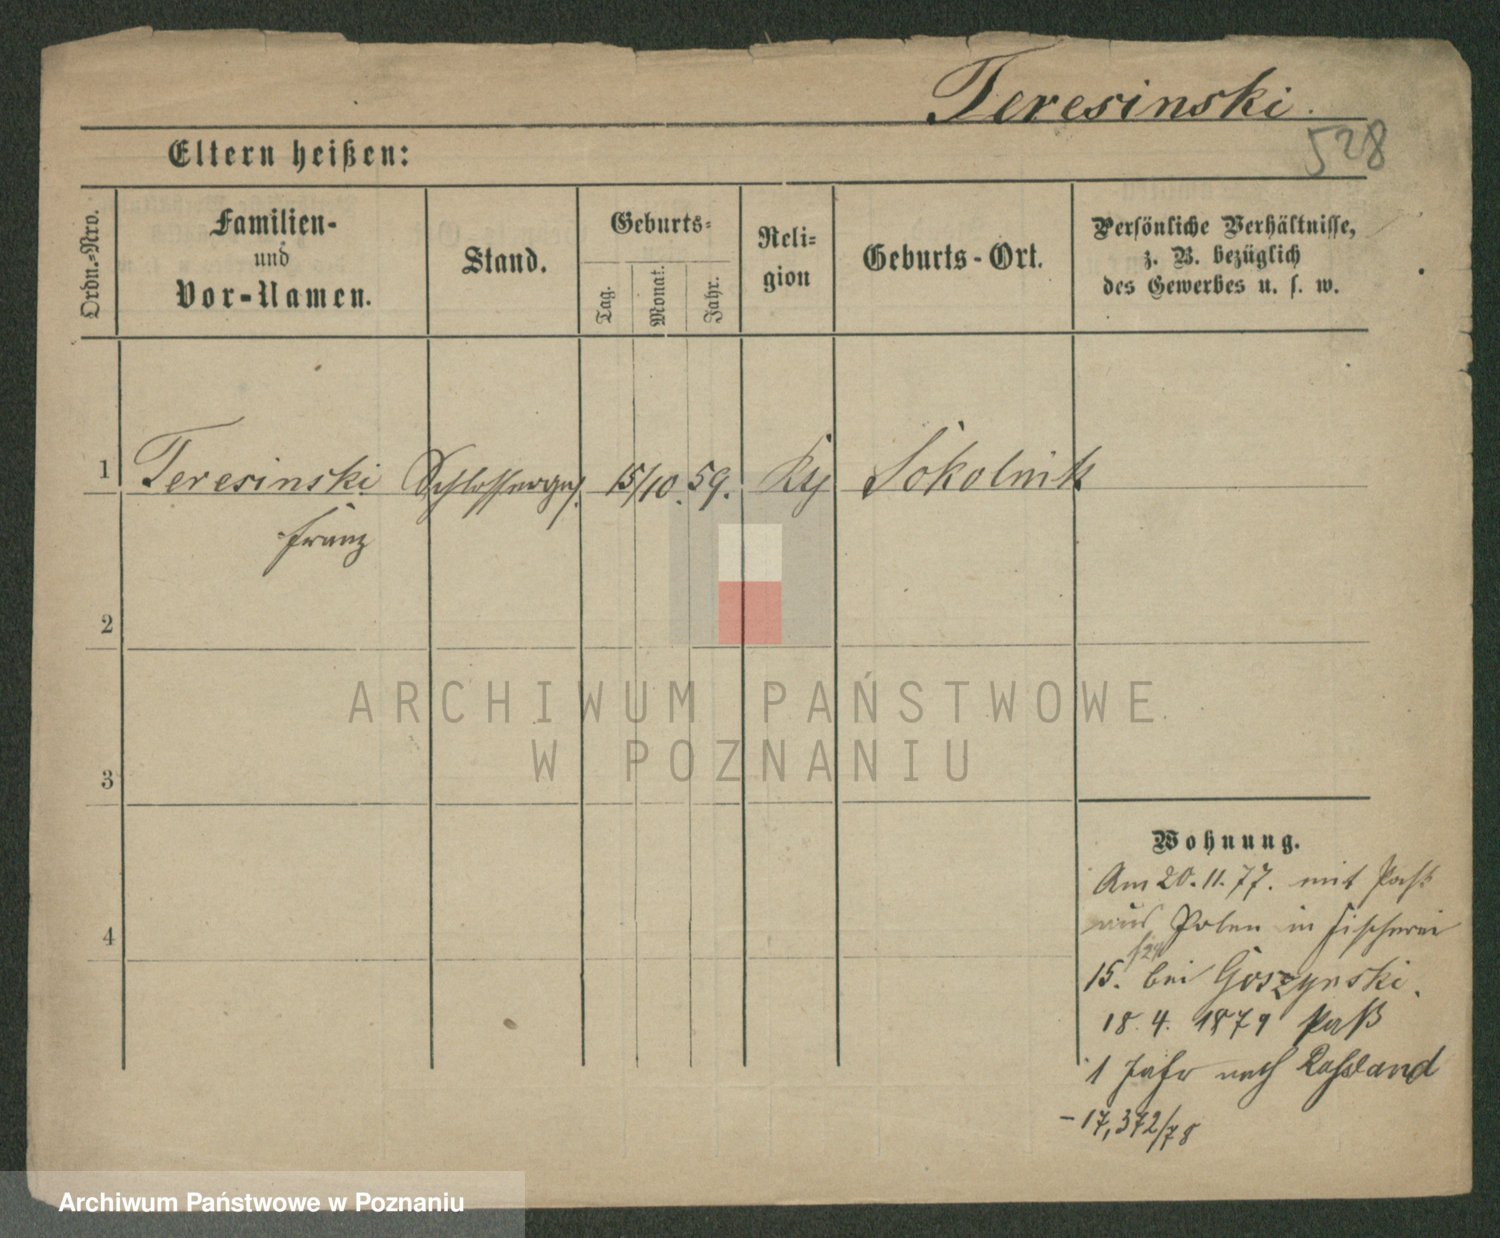 Teresinski.
528
Eltern heißen:
Ordn.-Nro.
Familien-
und
Vor-Namen.
Stand.
Geburts-
Tag.
Monat.
Jahr.
Reli-
gion
Geburts-Ort.
Persönliche Verhältnisse,
z. B. bezüglich
des Gewerbes u. s. w.
1 Teresinski Schlosserges. 15/10. 59. Sokolnik
Franz
2
3
4
ARCHIWUM PAŃSTWOWE
W POZNANIU
Wohnung.
Am 20.11.77. mit Paß
aus Polen in Fischerei
15. bei Goszynski.
18.4. 1879 Paß
1 Jahr nach Rußland
-17,372/78
Archiwum Państwowe w Poznaniu